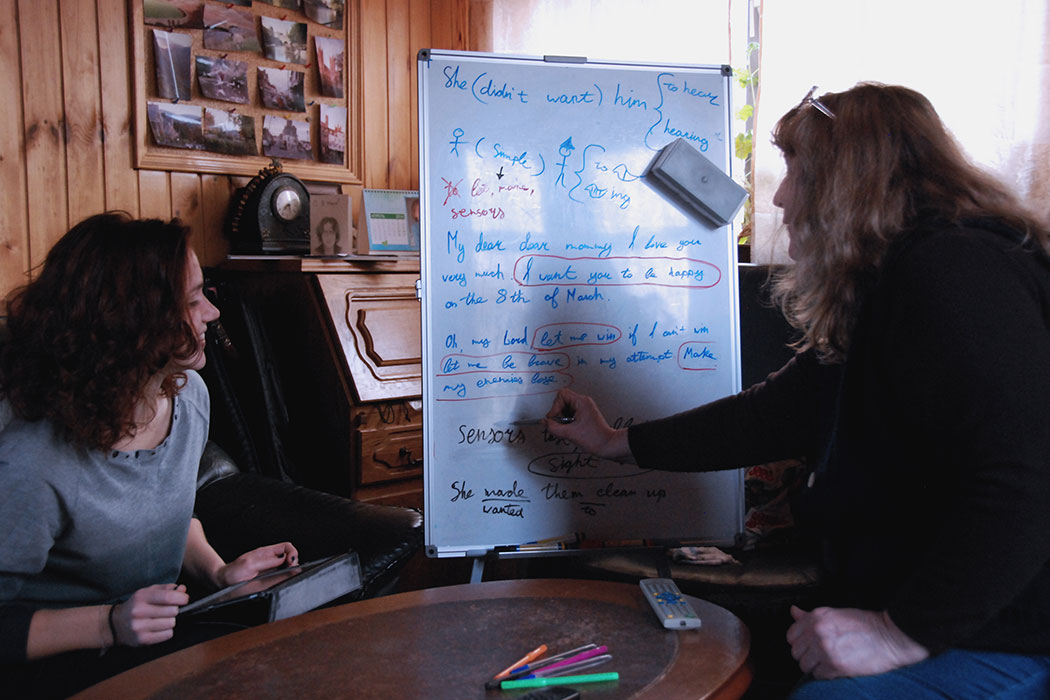 She (didn't want) him to hear
hearing
(Simple) to
ing
let, make,
sensors
My dear dear mommy I love you
very much. I want you to be happy
on the 8th of March.
Oh, my Lord let me win if I can't win
let me be brave in my attempt Make
my enemies lose.
sensors
sight
She made them clean up
wanted to